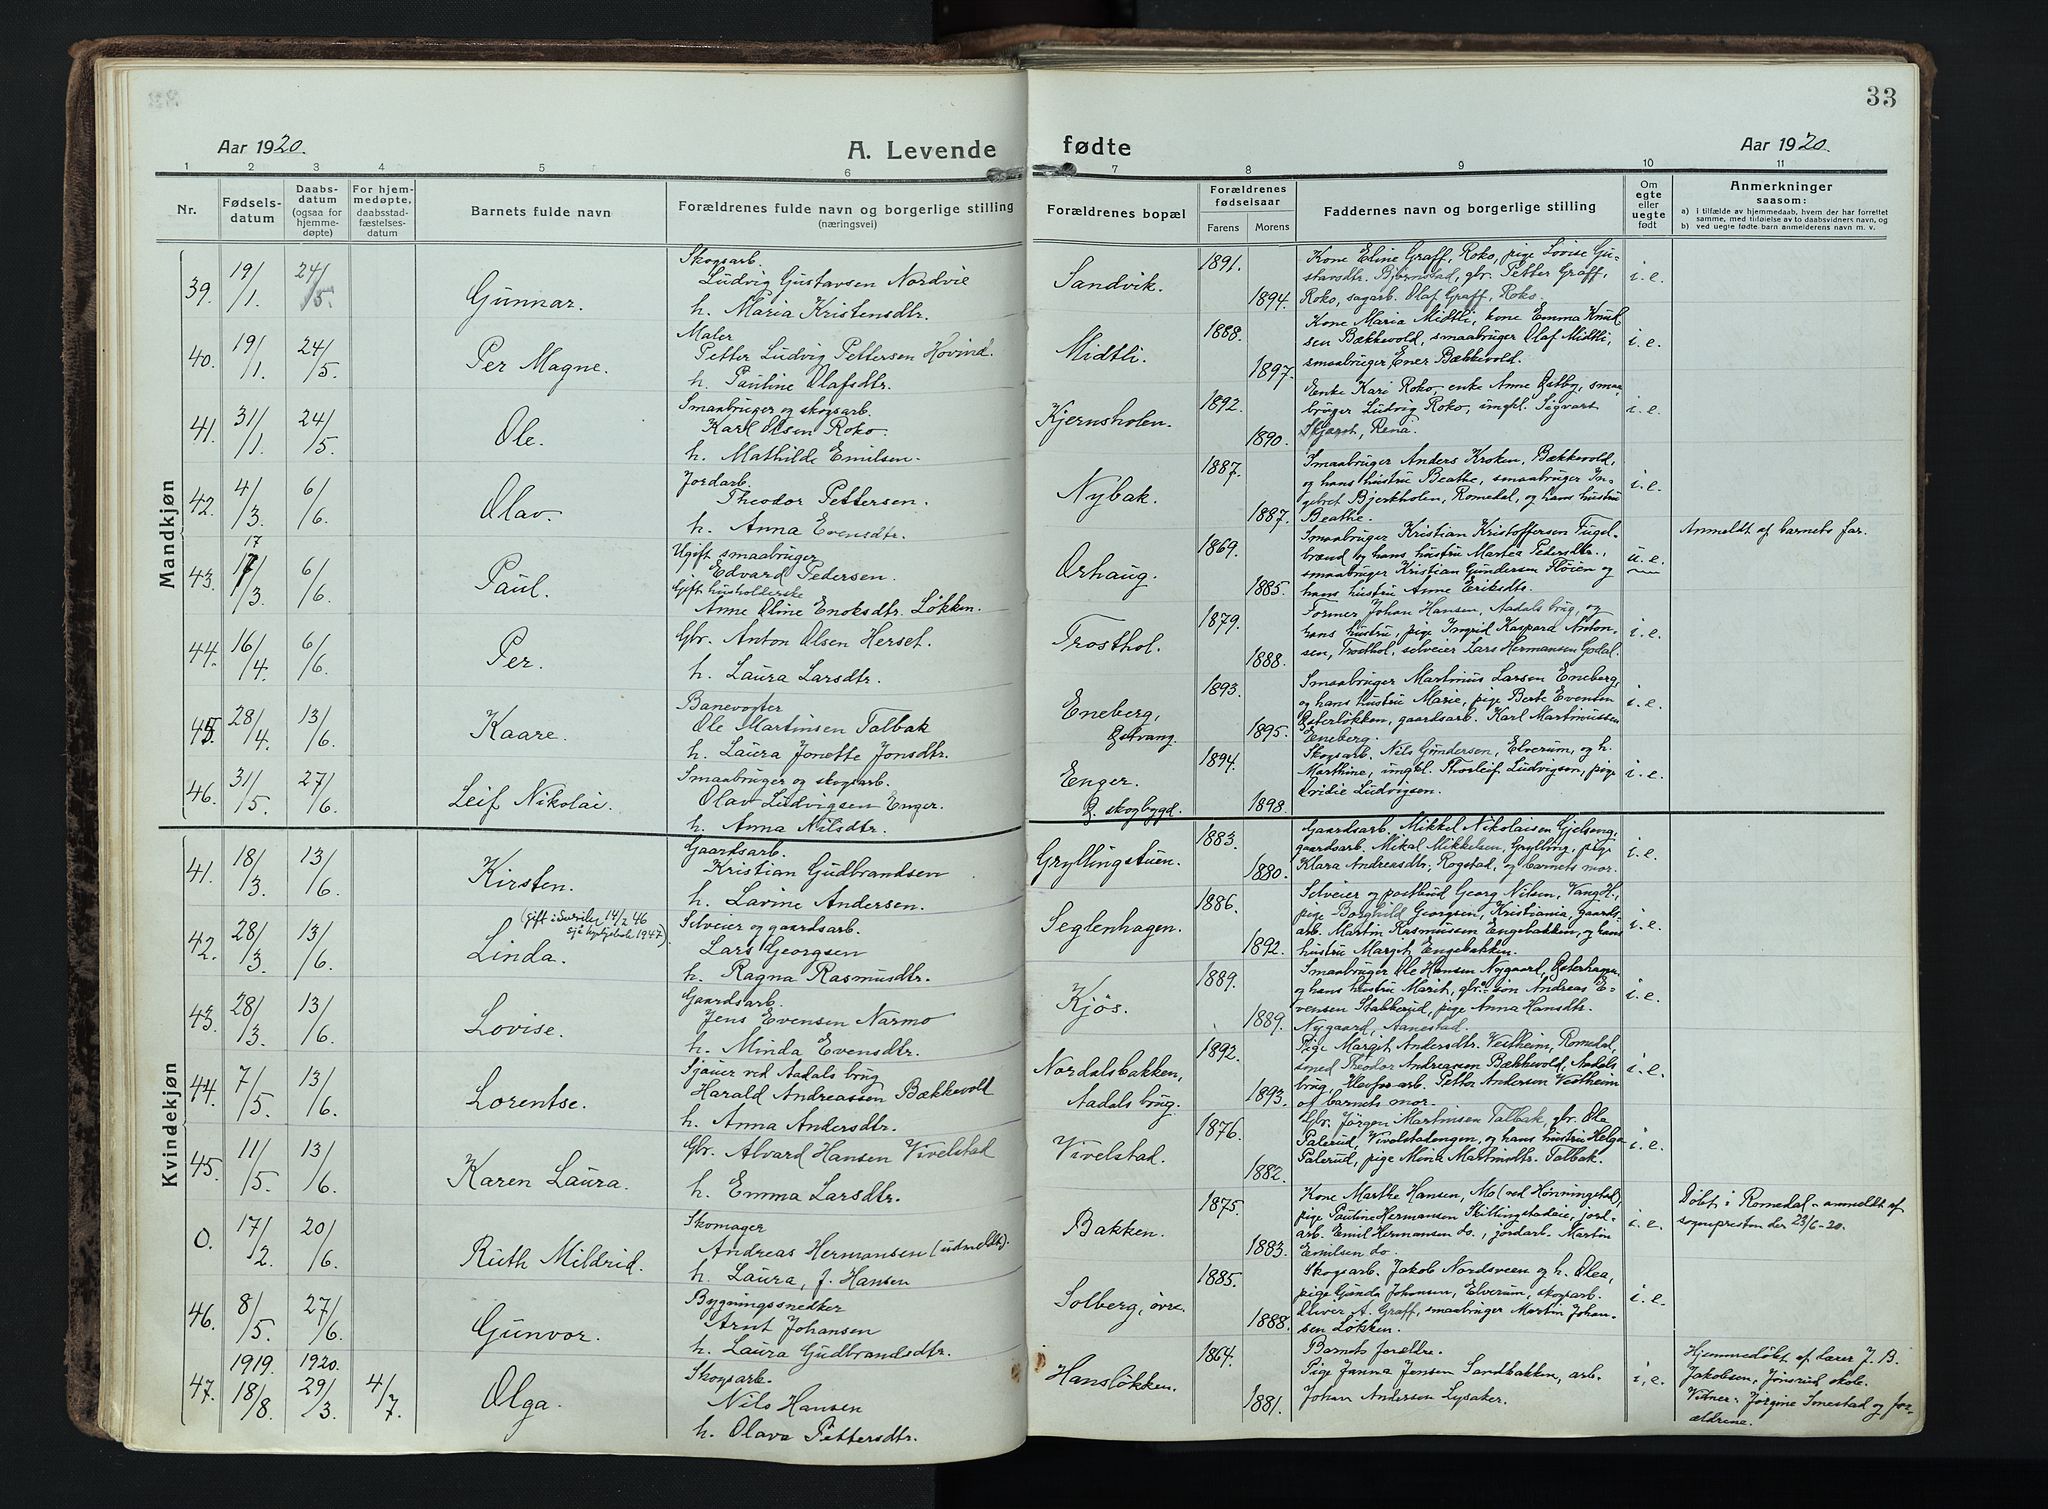 33
Aar 1920.
A. Levende
fødte
Aar 1920.
1 2 3 4 5 6 7 8 9 10 11
Nr.
Fødsels-
datum
Daabs-
datum
(ogsaa for
hjemme-
døpte)
For hjem-
medøpte,
daabsstad-
fæstelses-
datum
Barnets fulde navn
Forældrenes fulde navn og borgerlige stilling
(næringsvei)
Forældrenes bopæl
Forældrenes
fødselsaar
Farens
Morens
Faddernes navn og borgerlige stilling
Om
egte
eller
uegte
født
Anmerkninger
saasom:
a) i tilfælde av hjemmedaab, hvem der har forrettet
samme, med tilføielse av to daabsvidners navn, og
b) ved uegte fødte barn anmelderens navn m. v.
Mandkjøn
39. 19/1. 24/5. Gunnar.
Skogsarb.
Ludvig Gustavsen Nordvie
h. Maria Kristensdtr.
Sandvik. 1891. 1894.
Kone Eline Graff, Roko, pige Lovise Gu-
stavsdtr. Bjørnstad, gbr. Petter Graff,
Roko, sagarb. Olaf Graff, Roko.
i. e.
40. 19/1. 24/5. Per Magne.
Maler
Petter Ludvig Pettersen Hovind.
h. Pauline Olafsdtr.
Midtli. 1888. 1897.
Kone Maria Midtli, kone Emma Knud-
sen Bækkevold, smaabruger Olaf Midtli,
smaabruger Ener Bækkevold.
i. e.
41. 31/1. 24/5. Ole.
Smaabruger og skogsarb.
Karl Olsen Roko.
h. Mathilde Emilsen.
Kjernsholen. 1892. 1890.
Enke Kari Roko, enke Anne Østby, smaa-
bruger Ludvig Roko, ungkl. Sigvart
Skjaret, Rena.
i. e.
42. 4/3. 6/6. Olav.
Jordarb.
Theodor Pettersen.
h. Anna Evensdtr.
Nybak. 1887. 1887.
Smaabruger Anders Kroken, Bækkevold,
og hans hustru Beathe, smaabruger In-
gebret Bjerkholen, Romedal, og hans hustru
Beathe.
i. e.
43. 17 17/3. 6/6. Paul.
Ugift smaabruger
Edvard Pedersen.
Gift husholderske
Anne Oline Enoksdtr. Løkken.
Orhaug. 1869. 1885.
Smaabruger Kristian Kristoffersen Fugel-
brænd og hans hustru Martea Pedersdtr.,
smaabruger Kristian Gundersen Fløien og
hans hustru Anne Eriksdtr.
u. e.
Anmeldt af barnets far.
44. 16/4. 6/6. Per.
Gbr. Anton Olsen Herset.
h. Laura Larsdtr.
Trosthol. 1879. 1888.
Former Johan Hansen, Aadals brug, og
hans hustru, pige Ingrid Kaspara Anton-
sen, Trosthol, selveier Lars Hermansen Godal.
i. e.
45. 28/4. 13/6. Kaare.
Banevogter
Ole Martinsen Talbak
h. Laura Jonette Jonsdtr.
Eneberg,
Østvang. 1893. 1895.
Smaabruger Martinus Larsen Eneberg,
og hans hustru Marie, pige Berte Eventen
Østerløkken, gaardsarb. Karl Martinussen
Eneberg.
i. e.
46. 31/5. 27/6. Leif Nikolai.
Smaabruger og skogsarb.
Olav Ludvigsen Enger.
h. Anna Nilsdtr.
Enger.
Ø. skogbygd. 1894. 1898.
Skogsarb. Nils Gundersen, Elverum, og h.
Marthine, ungkl. Thorleif Ludvigsen, pige
Ovidie Ludvigsen.
i. e.
Kvindekjøn
41. 18/3. 13/6. Kirsten.
Gaardsarb.
Kristian Gudbrandsen
h. Lavine Andersen.
Gryllingstuen. 1883. 1880.
Gaardsarb. Mikkel Nikolaisen Gjelseng,
gaardsarb. Mikal Mikkelsen, Grylling, pige
Klara Andreasdtr. Rogstad, og barnets mor.
i. e.
42. 28/3. 13/6. (gift i 14/2 46
sjå 1947).
Linda.
Selveier og gaardsarb.
Lars Georgsen
h. Ragna Rasmusdtr.
Seglenhagen. 1886. 1892.
Selveier og postbud Georg Nilsen, Vang H.,
pige Borghild Georgsen, Kristiania, gaards-
arb. Martin Rasmussen Engebakken, og hans
hustru Margit Engebakken.
i. e.
43. 28/3. 13/6. Lovise.
Gaardsarb.
Jens Evensen Narmo
h. Minda Evensdtr.
Kjøs. 1889. 1889.
Smaabruger Ole Hansen Nygaard, Østerhagen,
og hans hustru Marit, gbr.søn Andreas E-
vensen Stabkerud, pige Anna Hansdtr.
Nygaard, Aanestad.
i. e.
44. 7/5. 13/6. Lorentse.
Sjauer ved Aadals brug
Harald Andreassen Bækkevold
h. Anna Andersdtr.
Nordalsbakken,
Aadals brug. 1892. 1893.
Pige Margit Andersdtr. Vestheim, Romedal,
smed Theodor Andreassen Bækkevold, Aadals
brug, Petter Andersen Vestheim
og barnets mor.
i. e.
45. 11/5. 13/6. Karen Laura.
Gbr. Alvard Hansen Vivelstad
h. Emma Larsdtr.
Vivelstad. 1876. 1882.
Gbr. Jørgen Martinsen Talbak, gbr. Ole
Palerud, Vivelstadengen, og hans hustru Helga
Palerud, pige Mina Martinsdtr. Talbak.
i. e.
0. 17/2. 20/6. Ruth Mildrid.
Skomager
Andreas Hermansen (utmeldt).
h. Laura, f. Hansen
Bakken. 1875. 1883.
Kone Marthe Hansen, (ved Hønningstad),
pige Pauline Hermansen Skillingstadeie, jord-
arb. Emil Hermansen do., jordarb. Martin
Emilsen do.
i. e.
Døbt i Romedal - anmeldt af
sognepresten der 23/6-20.
46. 8/5. 27/6. Gunvor.
Bygningssnedker
Arnt Johansen
h. Laura Gudbrandsdtr.
Solberg, øvre. 1885. 1888.
Skogsarb. Jakob Nordsveen og h. Olea,
pige Gunda Johansen, Elverum, skogsarb.
Oliver A. Graff, smaabruger Martin Johan-
sen Løkken.
i. e.
47. 1919. 18/8. 1920. 29/3. 4/7. Olga.
Skogsarb.
Nils Hansen
h. Olava Pettersdtr.
Hansløkken. 1864. 1881.
Barnets forældre.
Pige Janna Jensen Sandbakken, arb.
Johan Andersen Lysaker.
i. e.
Hjemmedøbt af lærer J. B.
Jakobsen, Jønsrud skole.
Vitner: Jørgine Imestad og for-
ældrene.